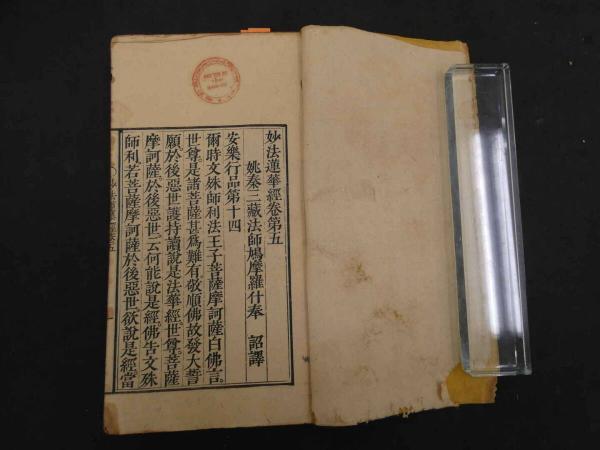 妙法蓮華經卷第五
姚秦三藏法師鳩摩羅什奉 詔譯
安樂行品第十四
爾時文殊師利法王子菩薩摩訶薩白佛言
世尊是諸菩薩甚爲難有敬順佛故發大誓
願於後惡世護持讀說是法華經世尊菩薩
摩訶薩於後惡世云何能說是經佛告文殊
師利若菩薩摩訶薩於後惡世欲說是經當